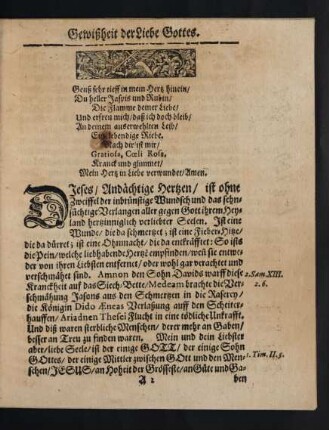 Gewißheit der Liebe Gottes.
Geuß sehr tieff in mein Hertz hinein/
Du heller Jaspis und Rubin/
Die Flamme deiner Liebe/
Und erfreu mich/ daß ich doch bleib/
An deinem außerwehlten Leib/
Ein lebendige Riebe.
Nach dir ist mir/
Gratiosa, Cœli Rosa,
Kranck und glimmet/
Mein Hertz in Liebe verwundet/ Amen.
DIeses/ Andächtige Hertzen/ ist ohne
Zweiffel der inbrünstige Wundsch und das sehn-
süchtige Verlangen aller gegen Gott ihrem Hey-
land hertzinniglich verliebter Seelen. Ist eine
Wunde/ die da schmertzet; ist eine Fieber-Hitze/
die da dürret; ist eine Ohnmacht/ die da entkräfftet: So ists
die Pein/ welche liebhabende Hertzen empfinden/ wen sie entwe-
der von ihren Liebsten entfernet/ oder wohl gar verachtet und
verschmähet sind. Amnon den Sohn Davids warff diese
Kranckheit auf das Siech-Bette/ Medeam brachte die Ver-
schmähung Jasons aus den Schmertzen in die Raserey/
die Königin Dido Æneas Verlassung auff den Scheiter-
hauffen/ Ariadnen Thesei Flucht in eine tödliche Unkrafft.
Und diß waren sterbliche Menschen/ derer mehr an Gaben/
besser an Treu zu finden waren. Mein und dein Liebster
aber/ liebe Seele/ ist der einige GOTT/ der einige Sohn
GOttes/ der einige Mittler zwischen GOtt und den Men-
schen/ JESUS/ an Hoheit der Grösseste/ an Güte und Ga-
2. Sam. XIII.
2. 6.
1. Tim. II, 5.
A 2
ben